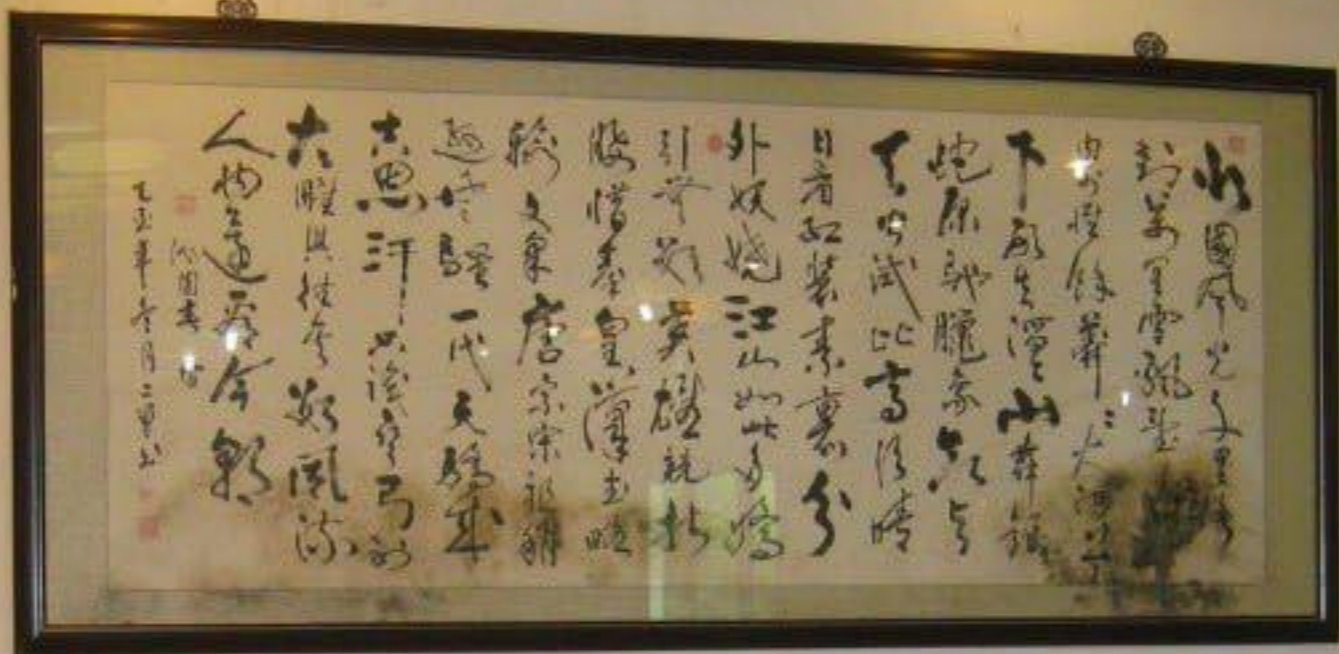 北國風光千里冰
封萬里雪飄望
內外惟餘莽莽大河上
下頓失滔滔山舞銀
蛇原馳臘象欲與
天公試比高須晴
日看紅裝素裹分
外妖嬈江山如此多嬌
引無數英雄競折
腰惜秦皇漢武略
輸文采唐宗宋祖稍
遜風騷一代天驕成
吉思汗只識彎弓射
大雕俱往矣數風流
人物還看今朝
沁園春雪
年冬月書